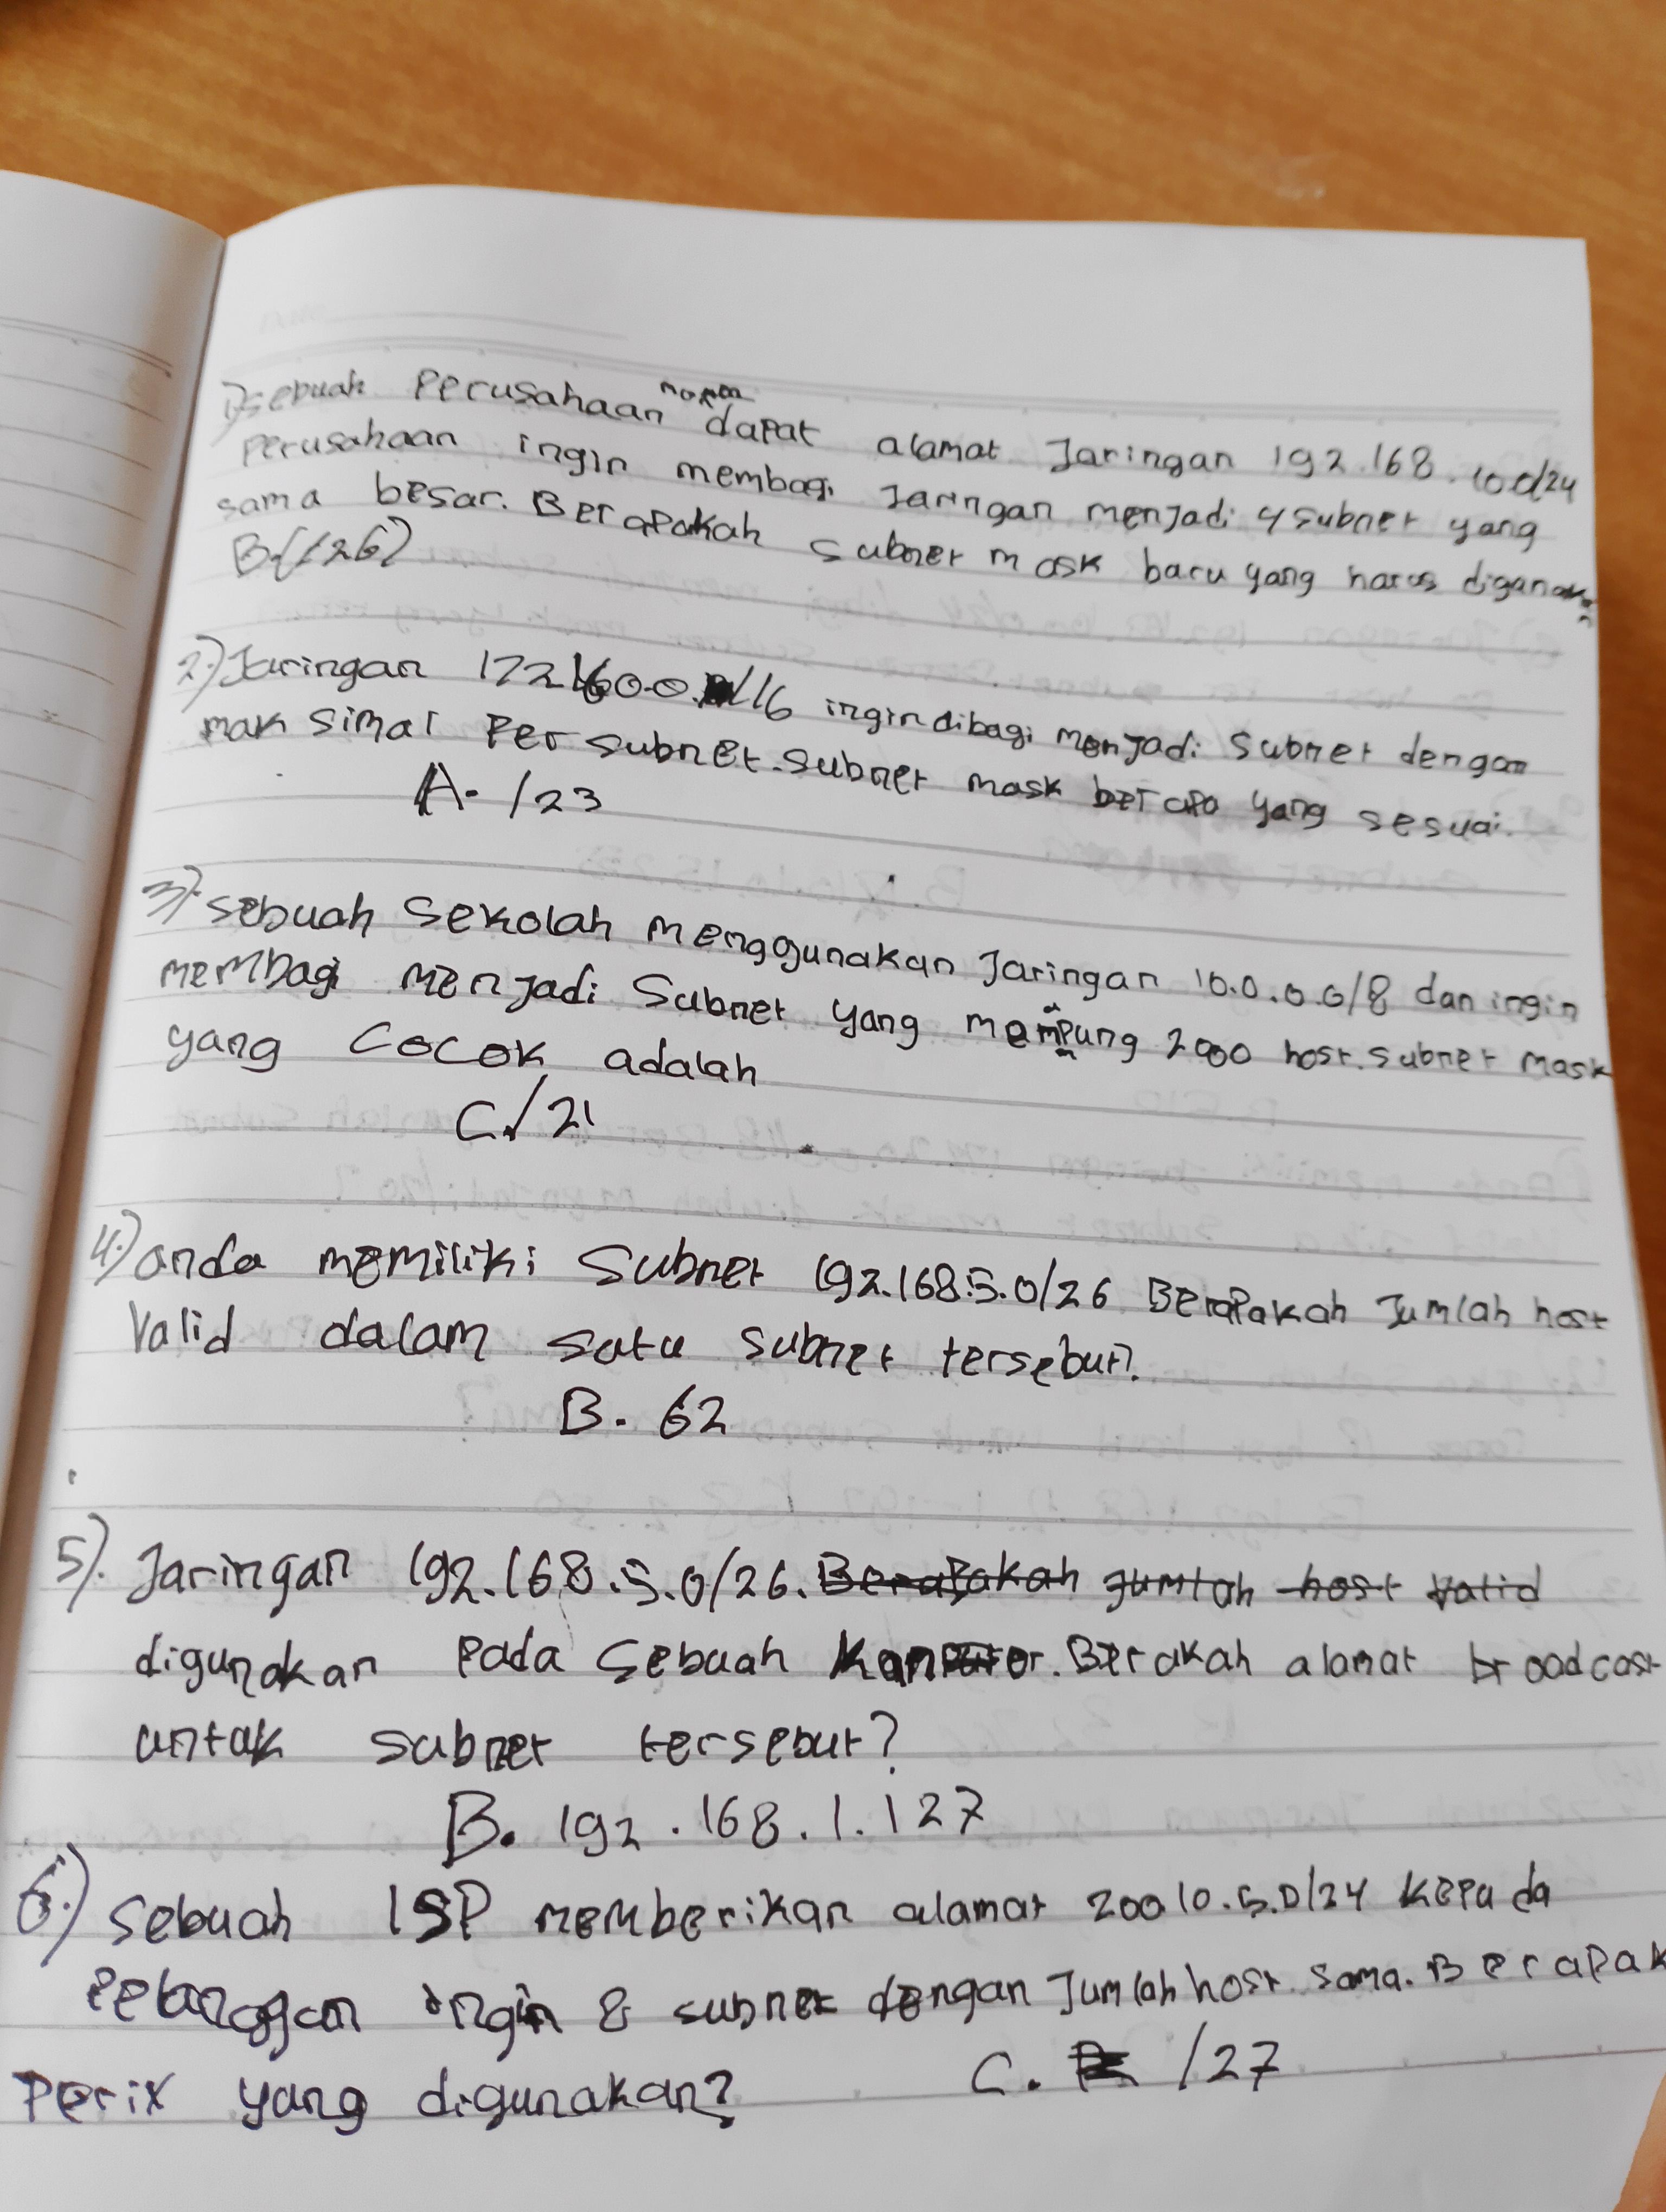 1) sebuah Perusahaan dapat alamat Jaringan 192.168.10.0/24
Perusahaan ingin membagi Jaringan menjadi 4 subnet yang
sama besar. Berapakah subnet mask baru yang harus
B. (/26)
2.) Jaringan /16 ingin dibagi menjadi Subnet dengan
maksimal Per subnet. subnet mask berapa yang sesuai.
A. /23
3) sebuah Sekolah menggunakan Jaringan 10.0.0.0/8 dan ingin
membagi menjadi Subnet yang 2000 host. subnet mask
yang Cocok adalah
C. /21
4.) anda memiliki Subnet 192.168.5.0/26 Berapakah Jumlah host
Valid dalam satu subnet tersebut?
B. 62
5). Jaringan 192.168.5.0/26. Berapakah jumlah host valid
digunakan Pada Sebuah Berakah alamat broadcast
untuk subnet tersebut?
B. 192.168.1.127
6.) Sebuah ISP memberikan alamat 200 10.5.0/24 kepada
Pelanggan ingin 8 subnet dengan Jumlah host sama. Berapak
Perix yang digunakan? C. /27